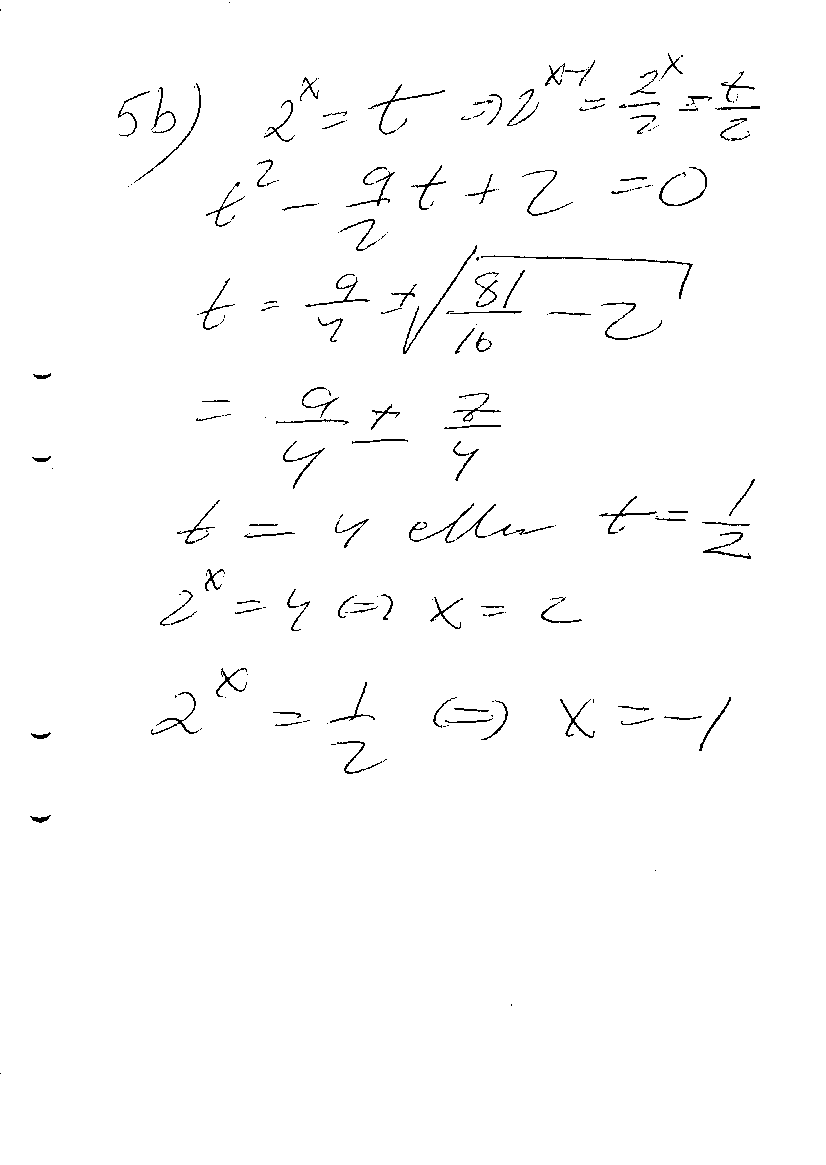 5b) 2^x = t ⇒ 2^{x-1} = \frac{2^x}{2} = \frac{t}{2}
t^2 - \frac{9}{2}t + 2 = 0
t = \frac{9}{4} ± \sqrt{\frac{81}{16} - 2}
= \frac{9}{4} ± \frac{7}{4}
t = 4 eller t = \frac{1}{2}
2^x = 4 ⇔ x = 2
2^x = \frac{1}{2} ⇔ x = -1